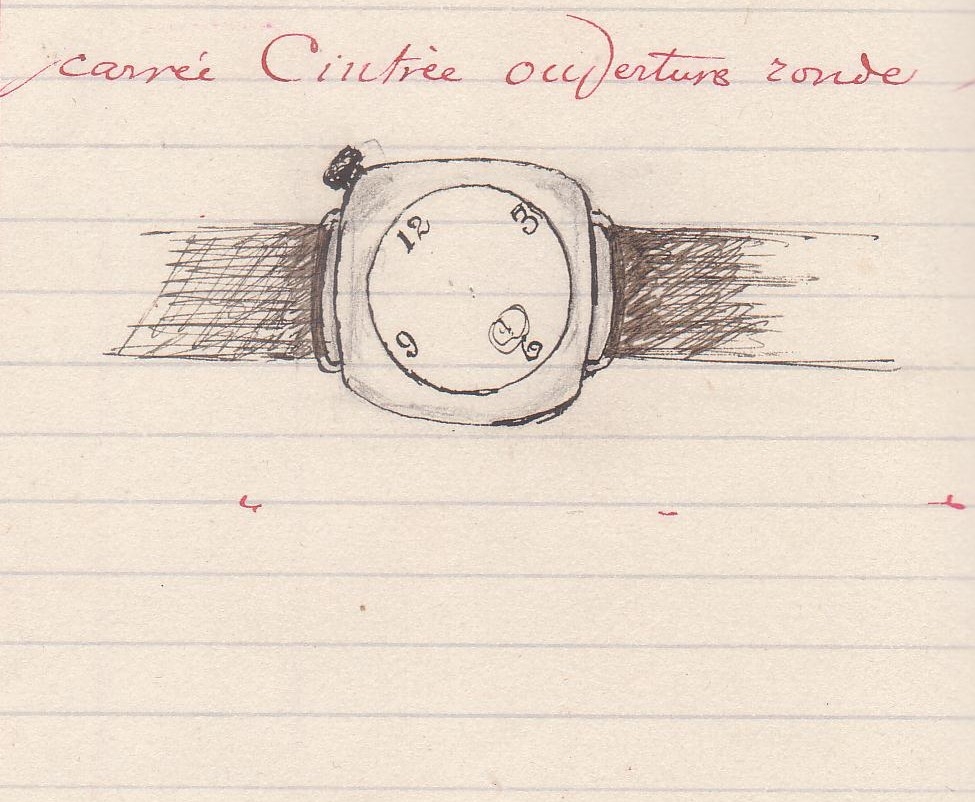 carrée Cintrée ouverture ronde
12 3
9 6